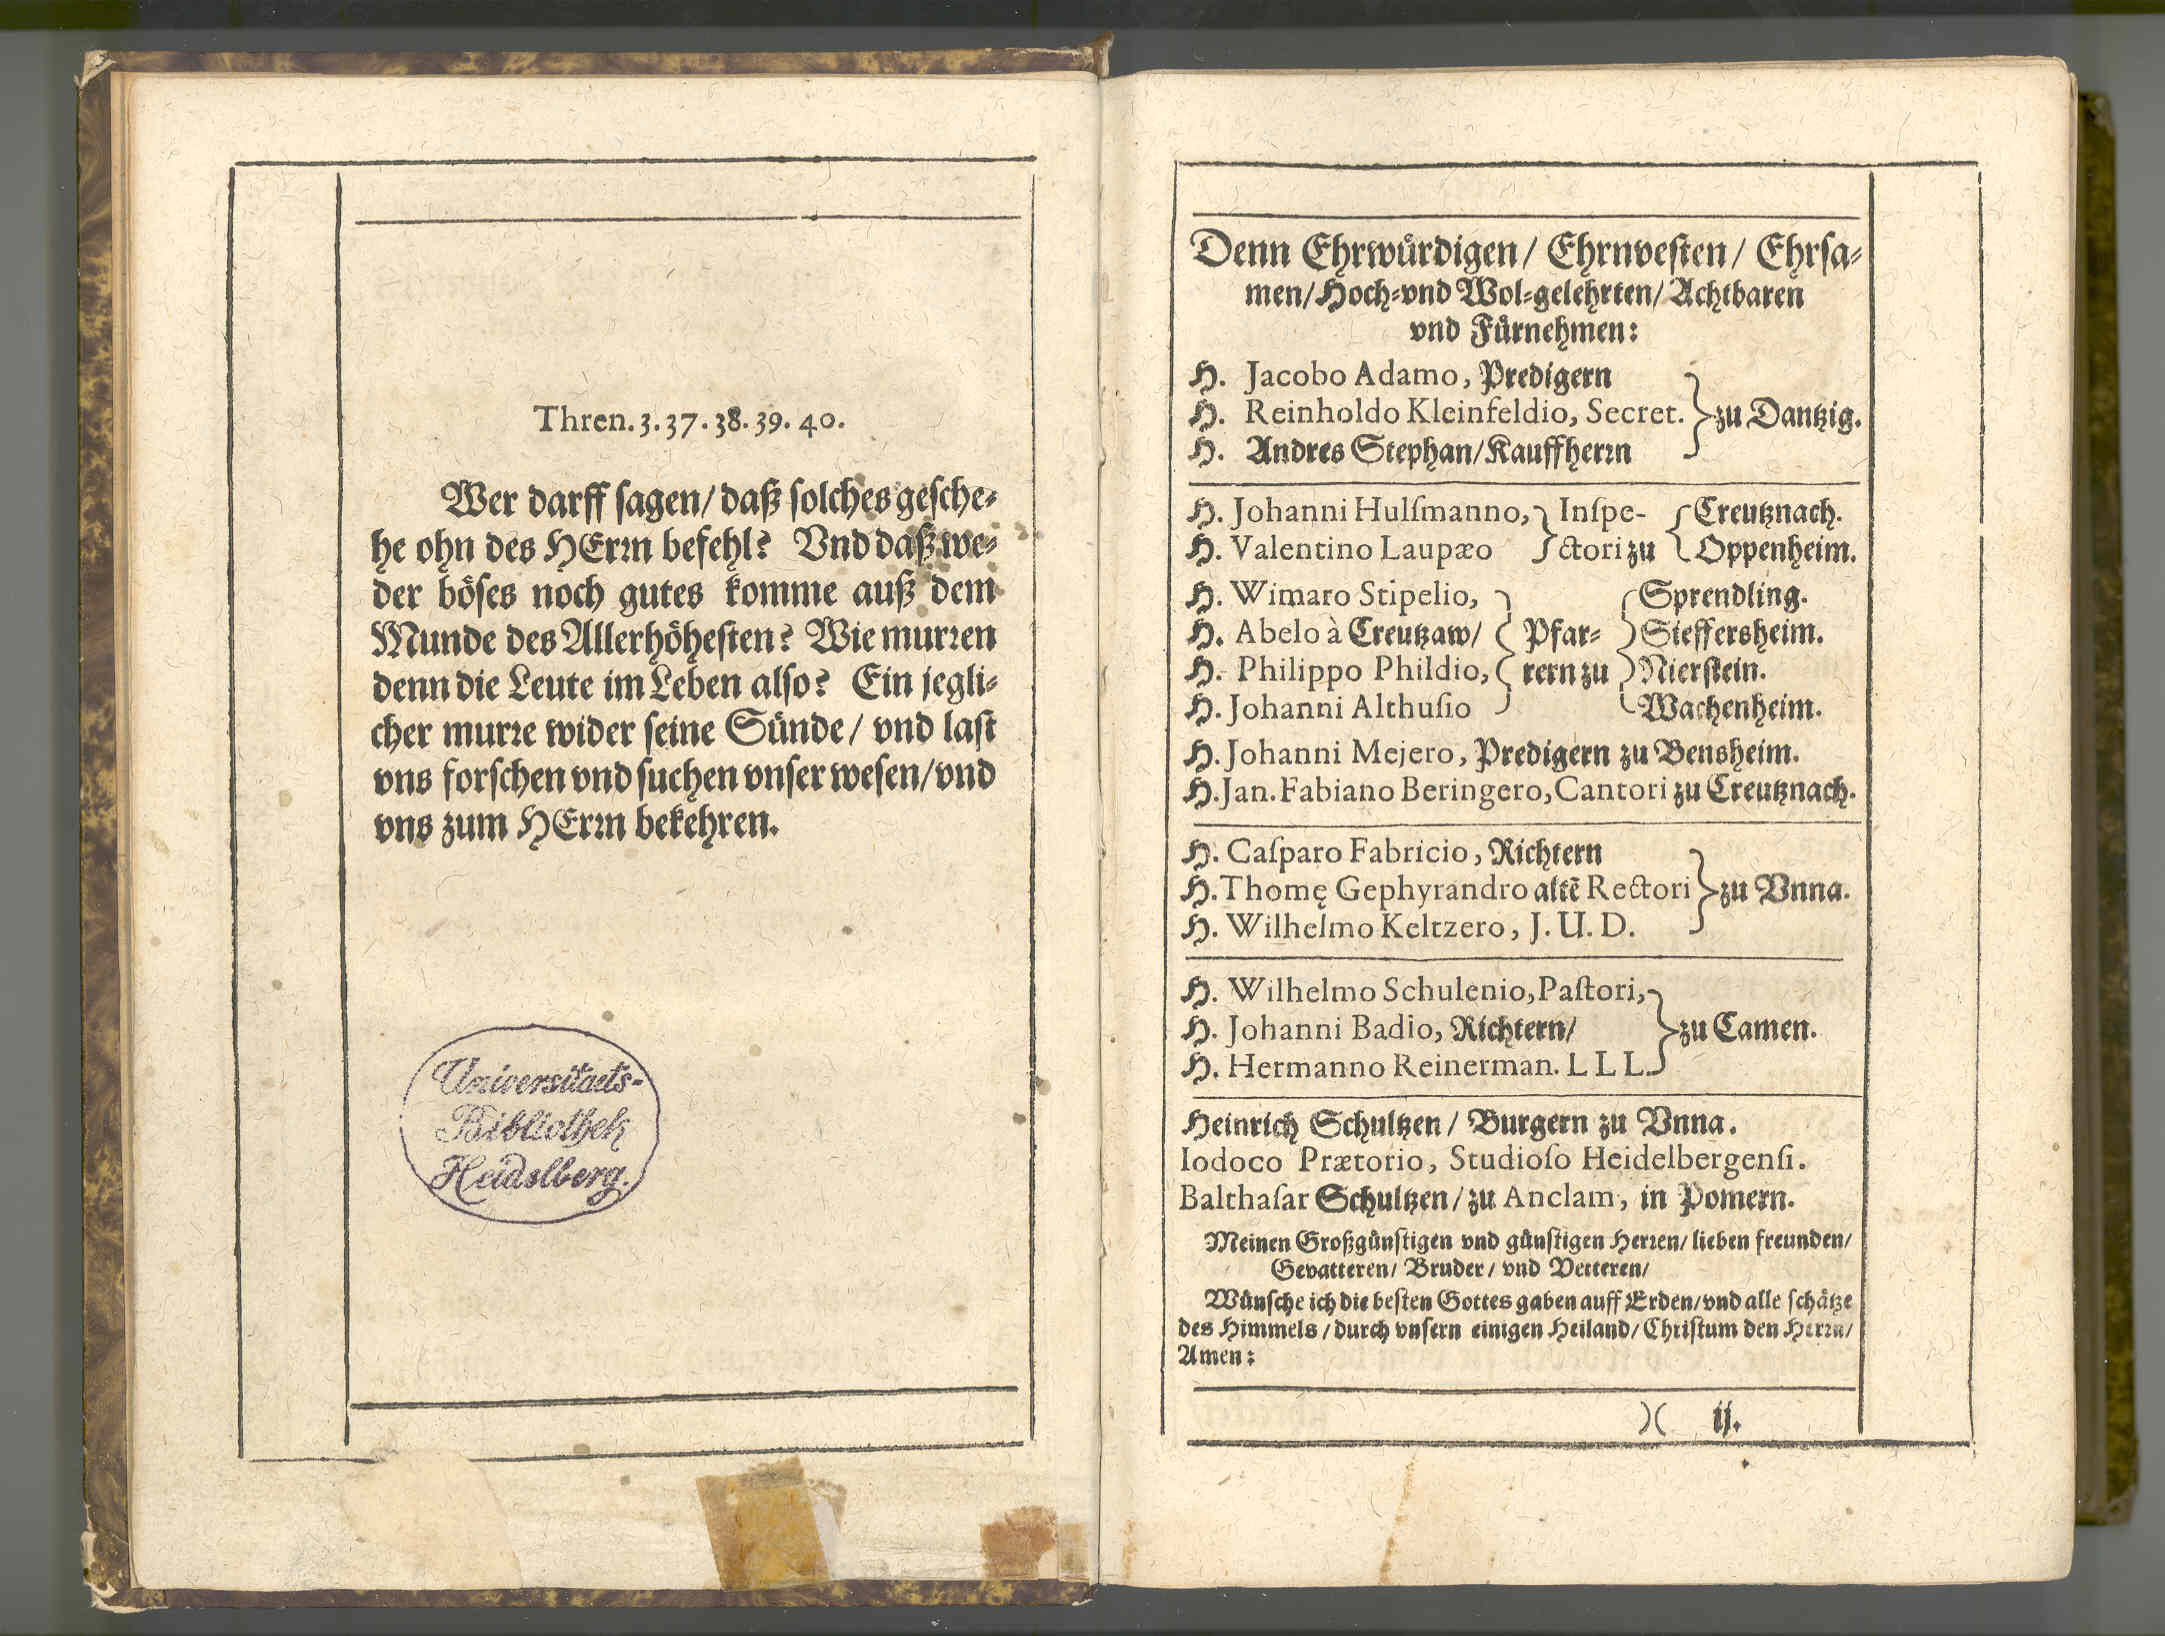 Thren. 3. 37. 38. 39. 40.
Wer darff sagen/ daß solches gesche-
he ohn des HErrn befehl? Vnd daß we-
der böses noch gutes komme auß dem
Munde des Allerhöhesten? Wie murren
denn die Leute im Leben also? Ein jegli-
cher murre wider seine Sünde/ vnd last
vns forschen vnd suchen vnser wesen/ vnd
vns zum HErrn bekehren.
Universitaets-
Bibliothek
Heidelberg.
Denn Ehrwürdigen/ Ehrnvesten/ Ehrsa-
men/ Hoch-vnd Wol-gelehrten/ Achtbaren
vnd Fürnehmen:
H. Jacobo Adamo, Predigern
H. Reinholdo Kleinfeldio, Secret. zu Dantzig.
H. Andres Stephan/ Kauffherrn
H. Johanni Hulsmanno, Inspe- Creutznach.
H. Valentino Laupæo ctori zu Oppenheim.
H. Wimaro Stipelio, Sprendling.
H. Abelo à Creutzaw/ Pfar- Sieffersheim.
H. Philippo Phildio, rern zu Nierstein.
H. Johanni Althusio Wachenheim.
H. Johanni Mejero, Predigern zu Bensheim.
H. Jan. Fabiano Beringero, Cantori zu Creutznach.
H. Casparo Fabricio, Richtern
H. Thomę Gephyrandro altẽ Rectori zu Vnna.
H. Wilhelmo Keltzero, J. U. D.
H. Wilhelmo Schulenio, Pastori,
H. Johanni Badio, Richtern/ zu Camen.
H. Hermanno Reinerman. L L L.
Heinrich Schultzen/ Burgern zu Vnna.
Iodoco Prætorio, Studioso Heidelbergensi.
Balthasar Schultzen/ zu Anclam, in Pomern.
Meinen Großgünstigen vnd günstigen Herren/ lieben freunden/
Gevatteren/ Bruder/ vnd Vetteren/
Wünsche ich die besten Gottes gaben auff Erden/ vnd alle schätze
des Himmels/ durch vnsern einigen Heiland/ Christum den Herrn/
Amen:
)( ij.